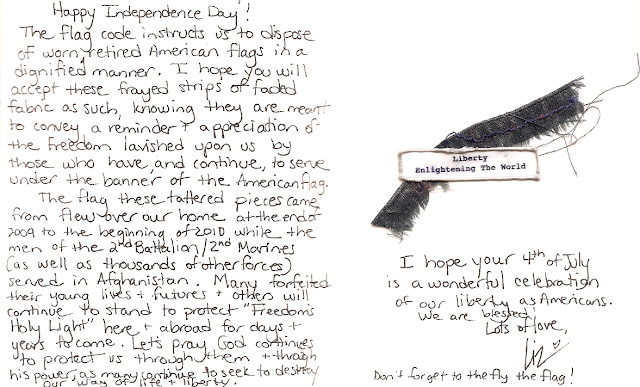 Happy Independence Day!
The flag code instructs us to dispose
of worn, retired American flags in a
dignified manner. I hope you will
accept these frayed strips of faded
fabric as such, knowing they are meant
to convey a reminder + appreciation of
the freedom lavished upon us by
those who have, and continue, to serve
under the banner of the American flag.
The flag these tattered pieces came
from flew over our home at the end of
2009 to the beginning of 2010 while the
men of the 2nd Battalion/2nd Marines
(as well as thousands of other forces)
served in Afghanistan. Many forfeited
their young lives + futures + others will
continue to stand to protect "Freedom's
Holy Light" here + abroad for days +
years to come. Let's pray God continues
to protect us through them + through
his power, as many continue to seek to destroy
our way of life + liberty.
Liberty
Enlightening The World
I hope your 4th of July
is a wonderful celebration
of our liberty as Americans.
We are blessed!
Lots of love,
Liz
Don't forget to the fly the flag!